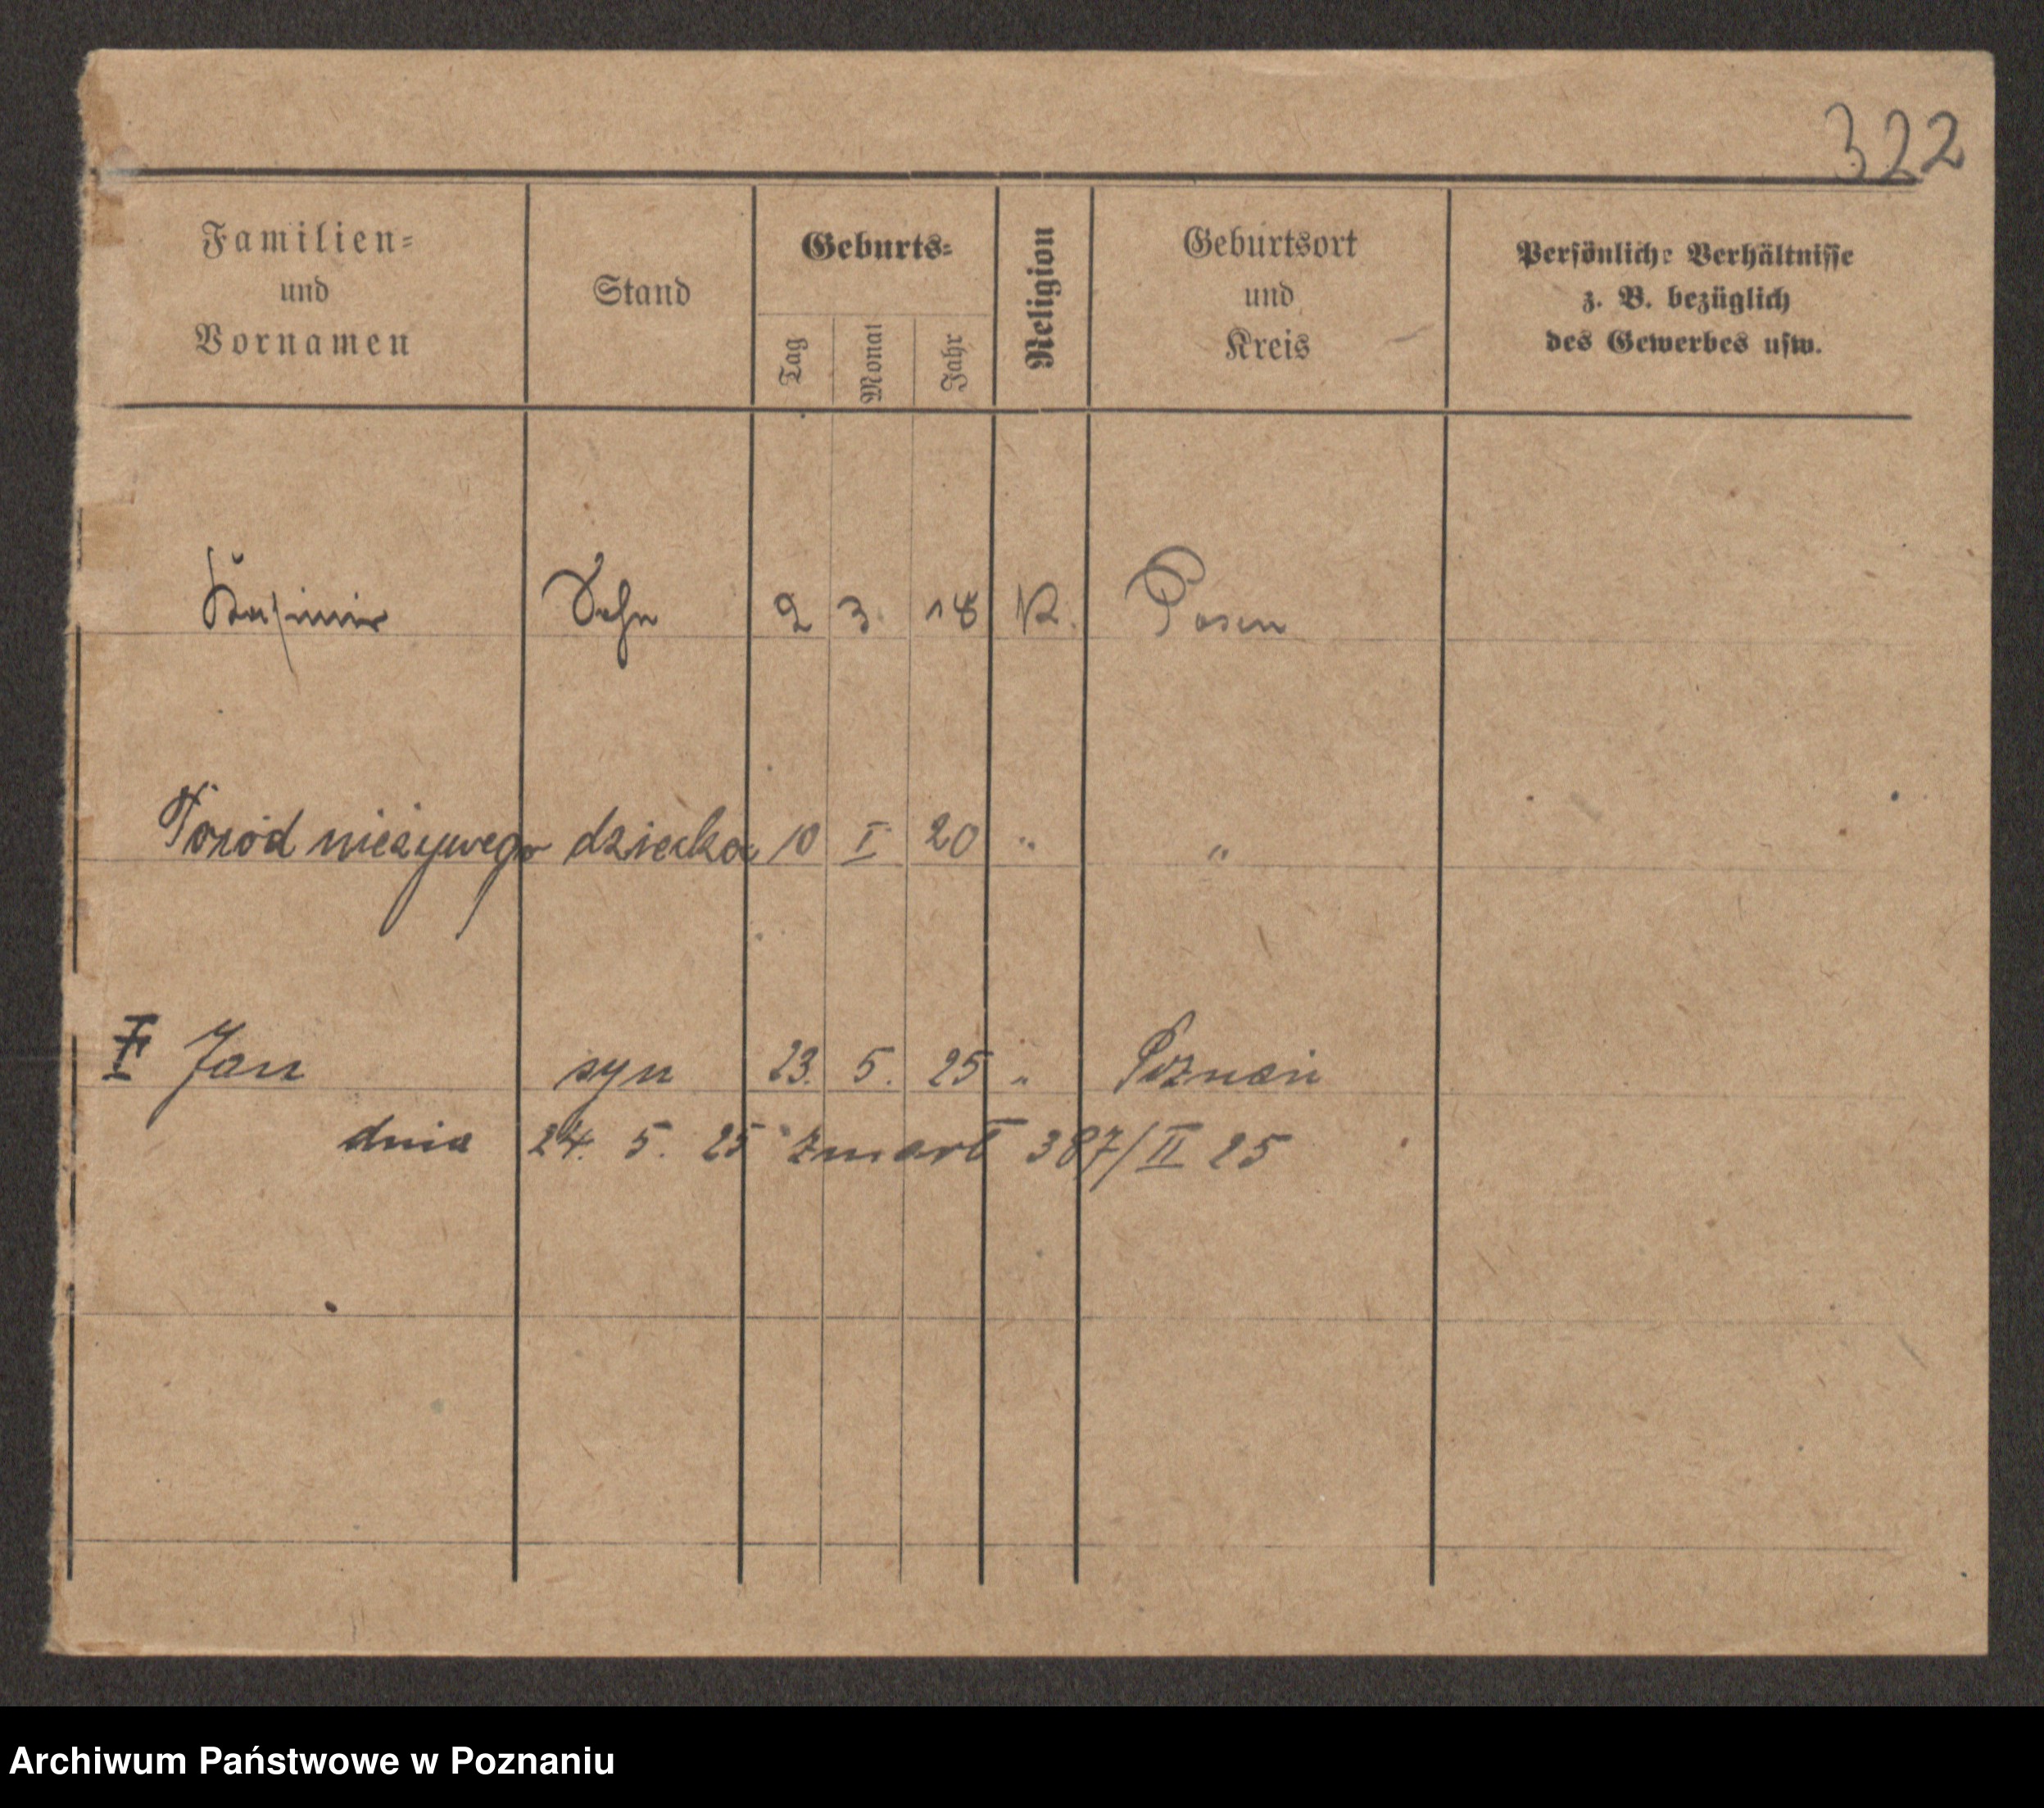 322
Familien= und Vornamen
Stand
Geburts=
Tag
Monat
Jahr
Religion
Geburtsort und Kreis
Persönliche Verhältnisse z. B. bezüglich des Gewerbes usw.
Kasimir Sohn 2 3. 18 K. Posen
Poród nieżywego dziecka 10 I 20 " "
Jan syn 23. 5. 25 " Poznań
dnia 24. 5. 25 zmarł 387/II 25
Archiwum Państwowe w Poznaniu